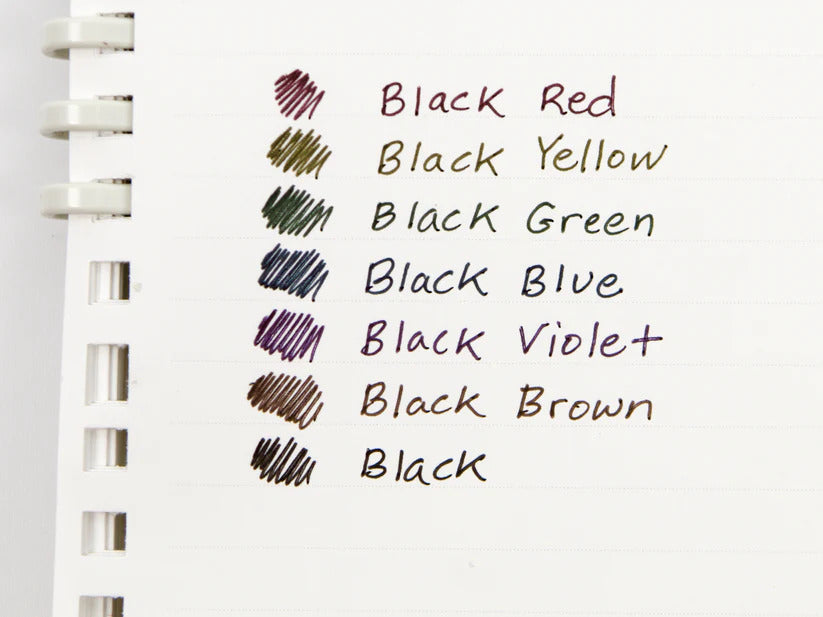 Black Red
Black Yellow
Black Green
Black Blue
Black Violet
Black Brown
Black